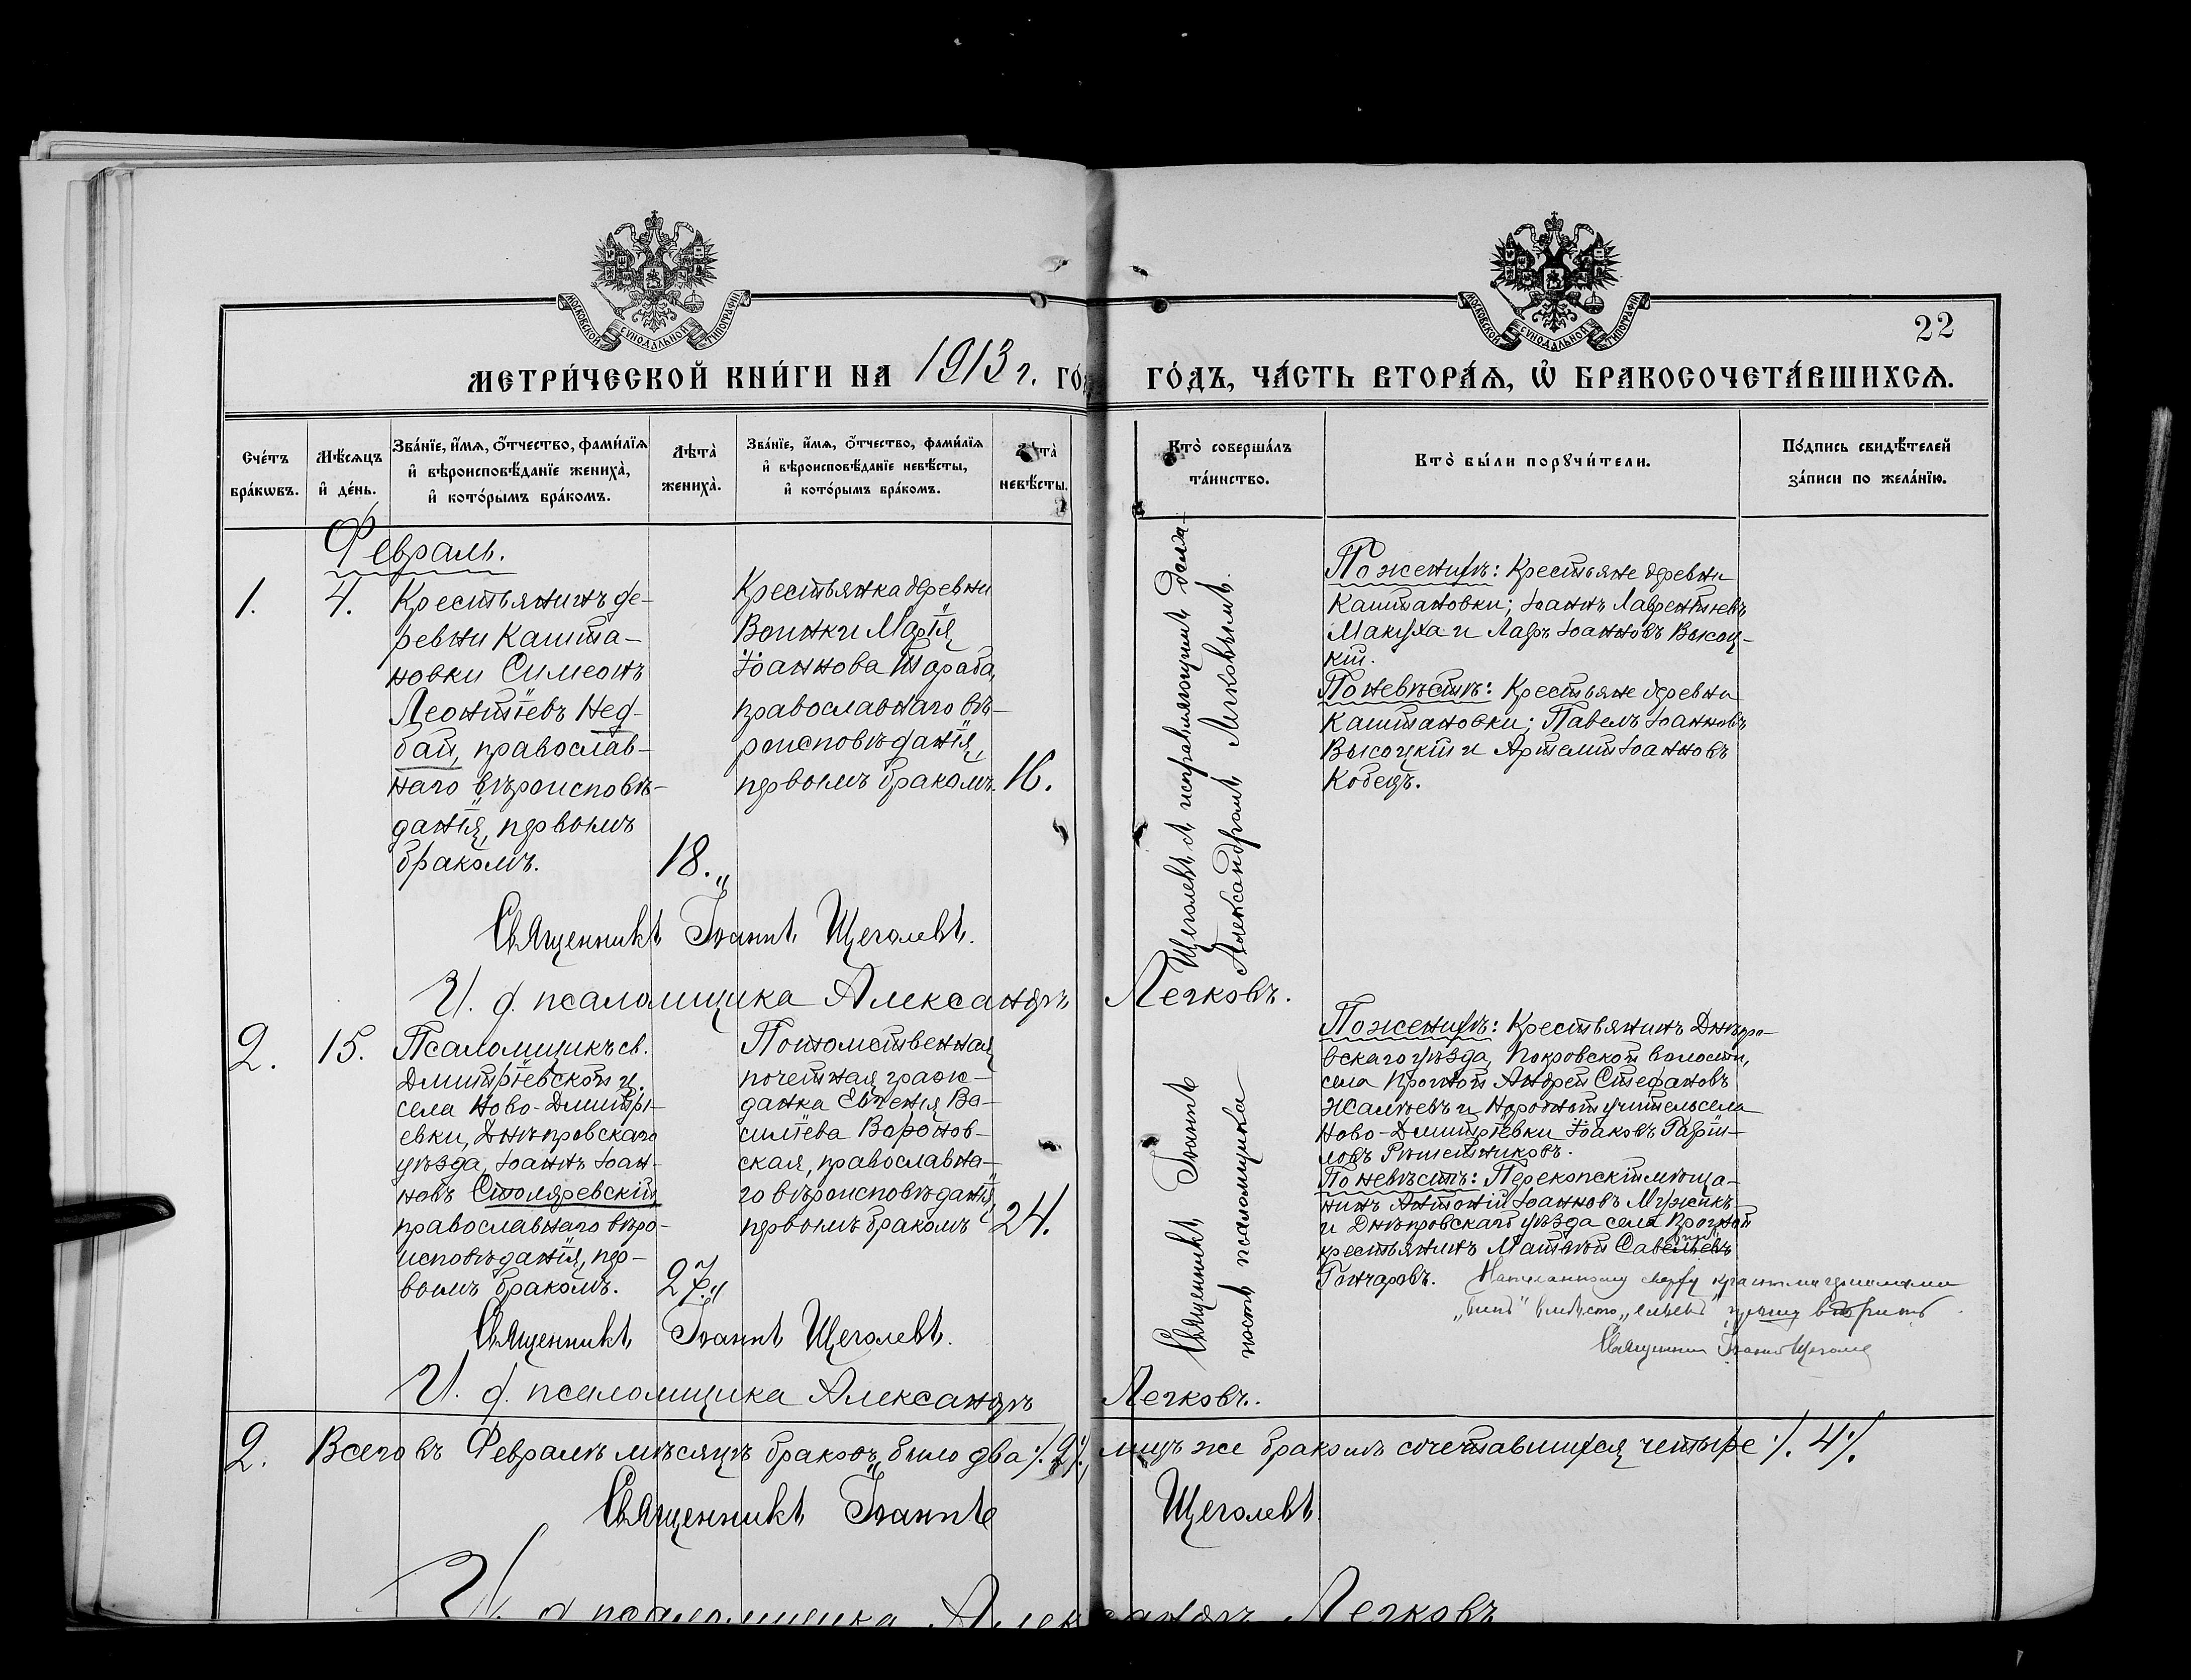 МОСКОВСКОЙ СѴНОДАЛЬНОЙ ТИПОГРАФІИ
МОСКОВСКОЙ СѴНОДАЛЬНОЙ ТИПОГРАФІИ
22
МЕТРИ́ЧЕСКОЙ КНИ́ГИ НА 1913 г. ГО́ ГО́ДЪ, ЧА́СТЬ ВТОРА́Ѧ, Ѽ БРАКОСОЧЕТА́ВШИХСѦ.
Сче́тъ
бра́кѡвъ.
Мѣ́сѧцъ
и҆ де́нь.
Зва́нїе, и҆́мѧ, ѻ҆́тчество, фами́лїѧ
и҆ вѣроисповѣ́данїе жениха̀,
и҆ кото́рымъ бра́комъ.
Лѣта̀
жениха̀.
Зва́нїе, и҆́мѧ, ѻ҆́тчество, фами́лїѧ
и҆ вѣроисповѣ́данїе невѣ́сты,
и҆ кото́рымъ бра́комъ.
Лѣта̀
невѣ́сты.
Кто̀ соверша́лъ
та́инство.
Кто̀ бы́ли порꙋчи́тели.
По́дпись свидѣ́телей
за́писи по жела́нїю.
Февраль.
1.
4.
Крестьянинъ де-
ревни Кашта-
новки Симеонъ
Леонтіевъ Нед-
бай, православ-
наго вѣроисповѣ-
данія, первымъ
бракомъ.
18.
Крестьянка деревни
Воинки Марія
Іоаннова Шараба,
православнаго вѣ-
роисповѣданія,
первымъ бракомъ.
16.
По женихѣ: Крестьяне деревни
Каштановки; Іоаннъ Лаврентіевъ
Макуха и Лавръ Іоанновъ Высоц-
кій.
По невѣстѣ: Крестьяне деревни
Каштановки; Павелъ Іоанновъ
Высоцкій и Артемій Іоанновъ
Кобецъ.
Священникъ Іоаннъ Щеголевъ.
И. д. псаломщика Александръ Легковъ.
2.
15.
Псаломщикъ св.
Димитріевской ц.
села Ново-Димитрі-
евки, Днѣпровскаго
уѣзда, Іоаннъ Іоан-
новъ Столяревскій,
православнаго вѣро-
исповѣданія, пер-
вымъ бракомъ.
27.
Потомственная
почетная граж-
данка Евгенія Ва-
силіева Воронов-
ская, православна-
го вѣроисповѣданія,
первымъ бракомъ
24.
Священникъ Іоаннъ
Щеголевъ съ исправляющимъ долж-
ность псаломщика
Александромъ Легковымъ.
По женихѣ: Крестьянинъ Днѣпро-
вскаго уѣзда, Покровской волости,
села Прогной Андрей Стефановъ
и Народный учитель села
Ново-Димитріевки Іаковъ Гаврі-
ловъ Рѣшетниковъ.
По невѣстѣ: Перекопскій мѣща-
нинъ Антоній Іоанновъ Мужейкъ
и Днѣпровскаго уѣзда села Прогной
крестьянинъ Матвѣй Савельевъ
Гончаровъ. Написанному сверху красными чернилами
„винъ" вмѣсто „ельевъ" прошу вѣрить.
Священникъ Іоаннъ Щеголевъ
Священникъ Іоаннъ Щеголевъ.
И. д. псаломщика Александръ Легковъ.
2. Всего въ Февралѣ мѣсяцѣ браковъ было два ./. 2 ./., лицъ же бракомъ сочетавшихся четыре ./. 4 ./.
Священникъ Іоаннъ Щеголевъ
И. д. псаломщика Александръ Легковъ